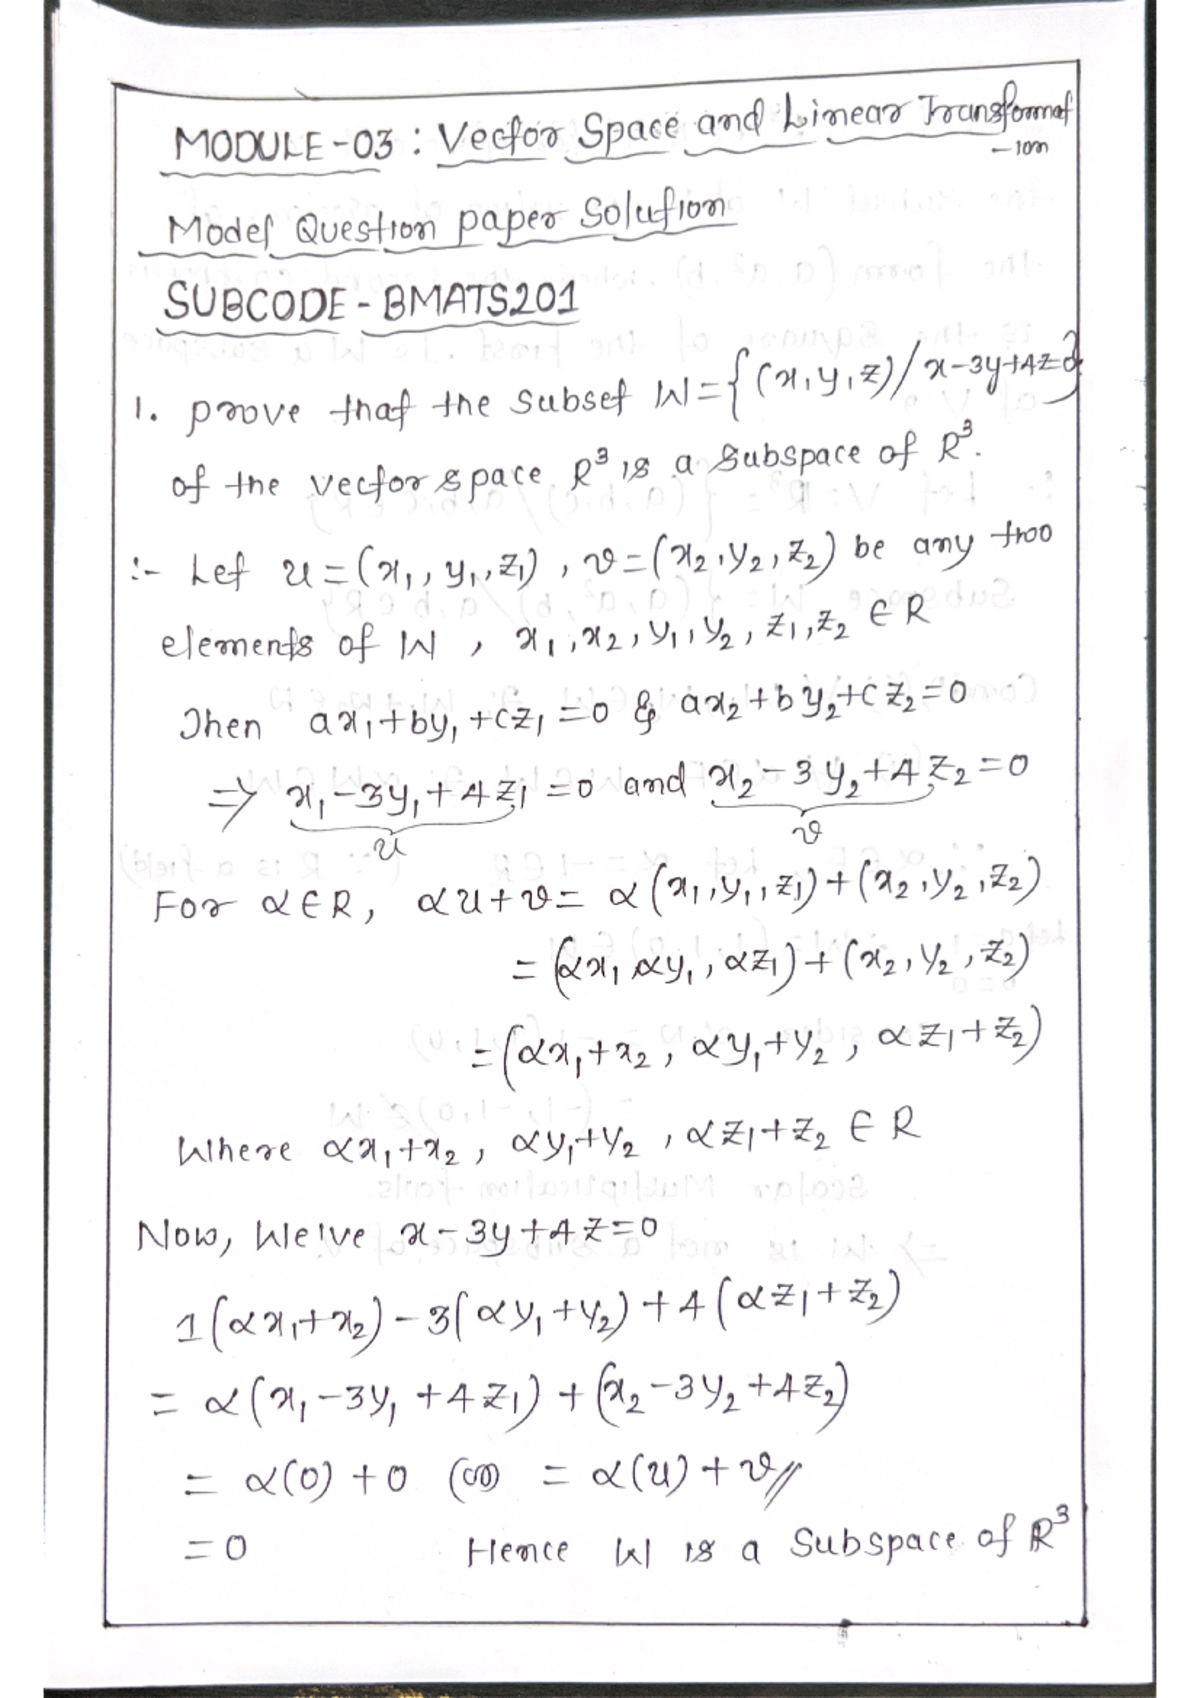 MODULE-03 : Vector Space and Linear Transformat
-ion
Model Question paper Solution
SUBCODE - BMATS201
1. prove that the subset W = {(x, y, z) / x-3y+4z=0}
of the vector space R³ is a subspace of R³.
:- Let u = (x₁, y₁, z₁), v = (x₂, y₂, z₂) be any two
elements of W, x₁, x₂, y₁, y₂, z₁, z₂ ∈ R
Then ax₁+by₁+cz₁ = 0 & ax₂+by₂+cz₂ = 0
⇒ x₁-3y₁+4z₁ = 0 and x₂-3y₂+4z₂ = 0
u v
For α∈R, αu+v = α(x₁, y₁, z₁)+(x₂, y₂, z₂)
= (αx₁, αy₁, αz₁)+(x₂, y₂, z₂)
= (αx₁+x₂, αy₁+y₂, αz₁+z₂)
Where αx₁+x₂, αy₁+y₂, αz₁+z₂ ∈ R
Now, We've x-3y+4z=0
1(αx₁+x₂)-3(αy₁+y₂)+4(αz₁+z₂)
= α(x₁-3y₁+4z₁)+(x₂-3y₂+4z₂)
= α(0)+0 (or) = α(u)+v//
= 0 Hence W is a Subspace of R³